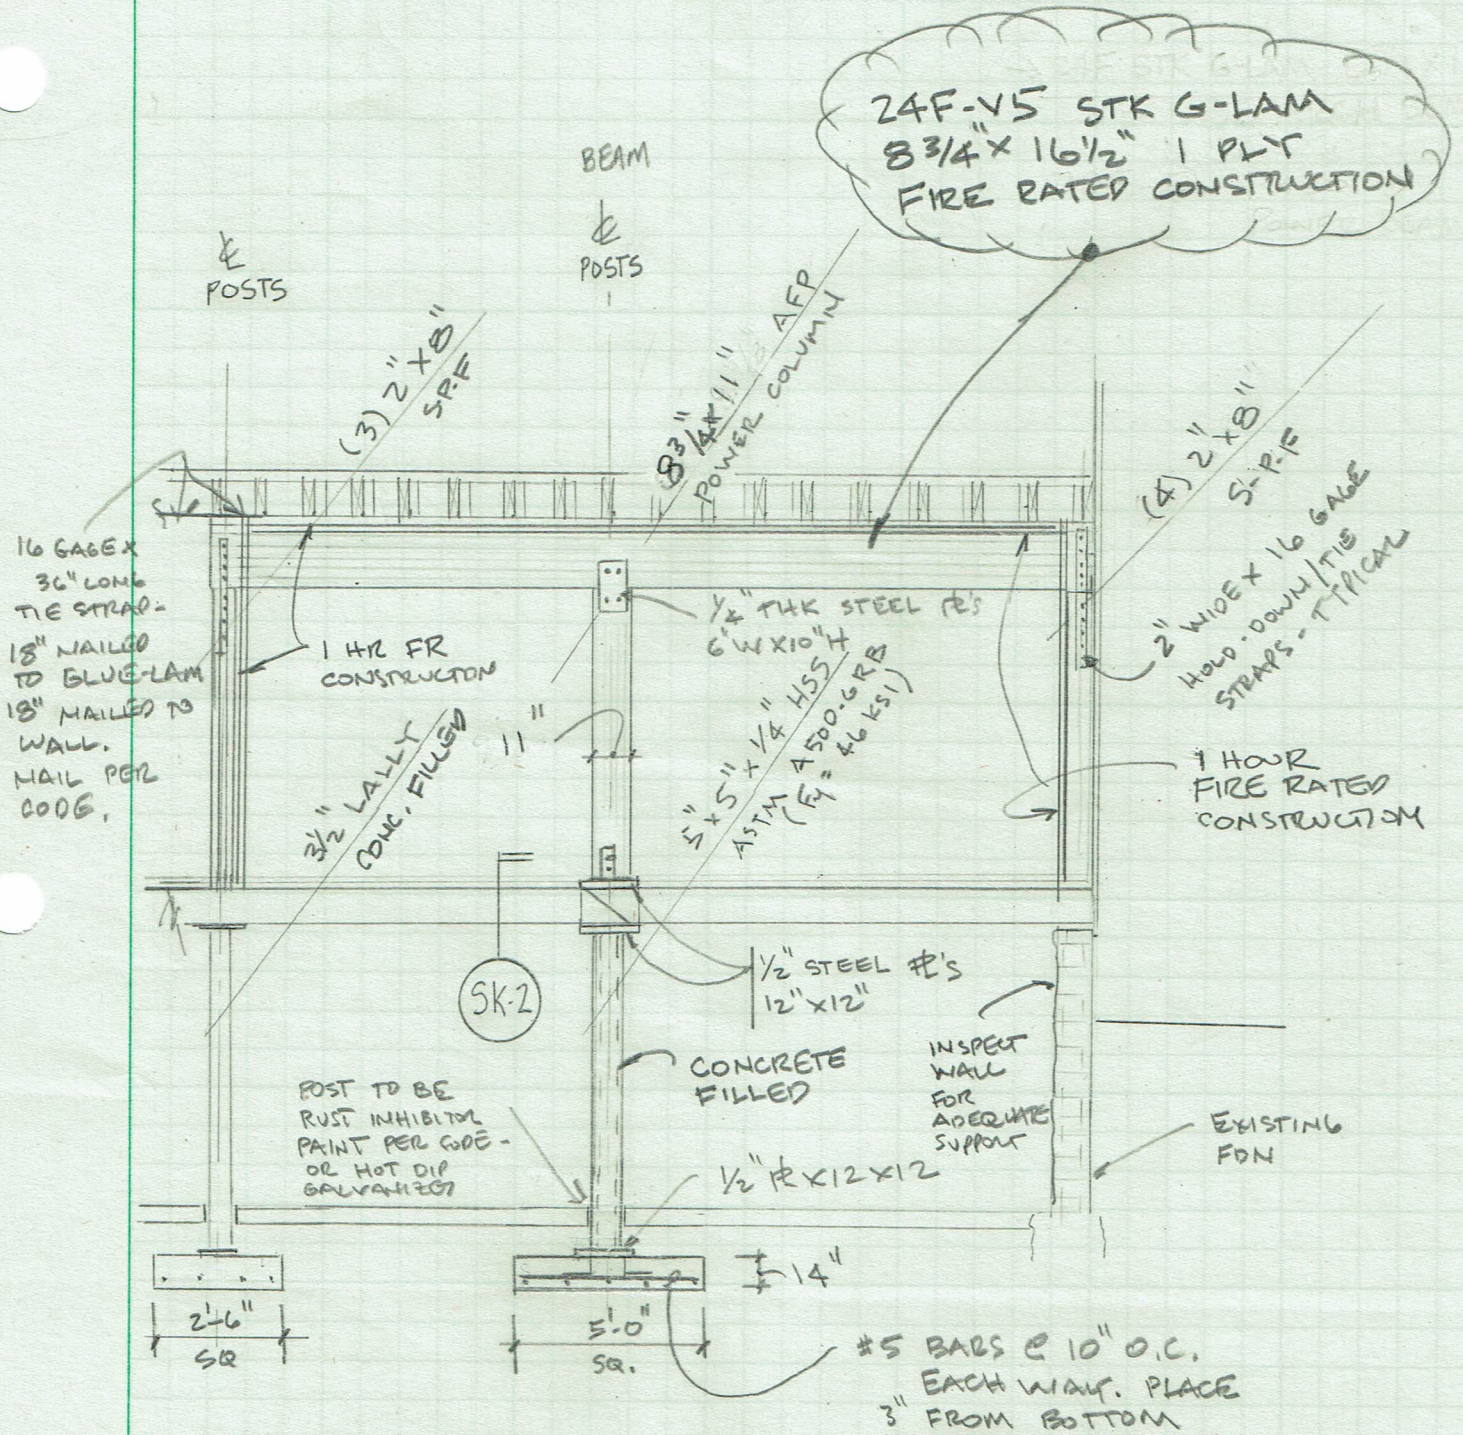 24F-V5 STK G-LAM
8 3/4" X 16 1/2" 1 PLY
FIRE RATED CONSTRUCTION
BEAM
℄
POSTS
℄
POSTS
(3) 2" X 8"
S-P-F
8 3/4" X 11" AFP
POWER COLUMN
(4) 2" X 8"
S-P-F
2" WIDE X 16 GAGE
HOLD-DOWN/TIE
STRAPS - TYPICAL
16 GAGE X
36" LONG
TIE STRAP-
18" NAILED
TO GLUE-LAM
18" NAILED TO
WALL.
NAIL PER
CODE.
1 HR FR
CONSTRUCTON
1/4" THK STEEL ℄'s
6"W X 10"H
11"
3 1/2" LALLY
CONC. FILLED
5" X 5" X 1/4" HSS
ASTM A500-GRB
(Fy = 46 KSI)
1 HOUR
FIRE RATED
CONSTRUCTION
SK-2
1/2" STEEL PL's
12" X 12"
CONCRETE
FILLED
INSPECT
WALL
FOR
ADEQUATE
SUPPORT
EXISTING
FDN
POST TO BE
RUST INHIBITOR
PAINT PER CODE -
OR HOT DIP
GALVANIZED
1/2" PL X 12 X 12
14"
2'-6"
SQ
5'-0"
SQ.
#5 BARS @ 10" O.C.
EACH WAY. PLACE
3" FROM BOTTOM